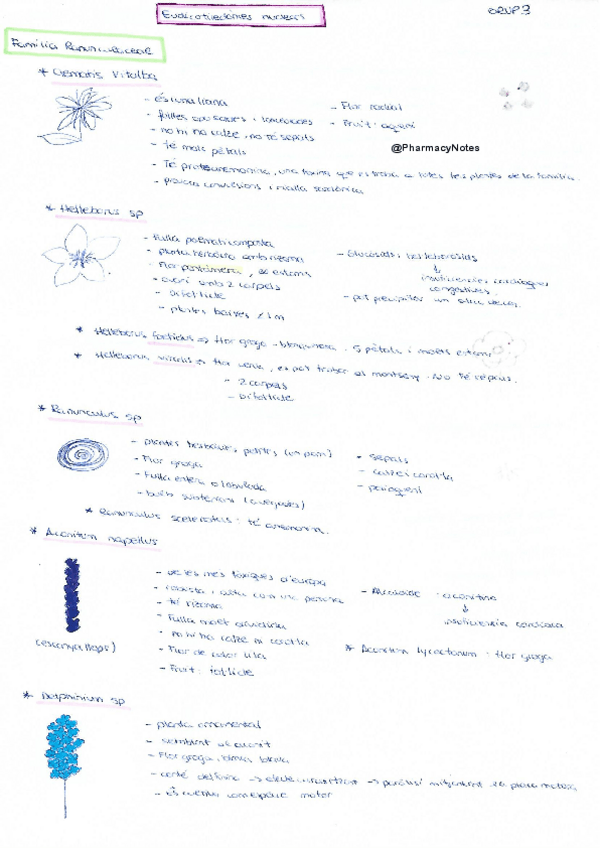 Eudicotiledònies nuneres
GRUP 3
Família Ranunculaceae
* Clematis Vitalba
- és una liana
- fulles oposades i
- no hi ha calze, no té sèpals
- Té molts pètals
- Té protoanemonina, una toxina que es troba a totes les plantes de la família.
- provoca convulsions i
- Flor radial
- Fruit: aqueni
@PharmacyNotes
* Helleborus sp
- Fulla palmaticomposta
- planta herbàcia amb rizoma
- Flor pentàmera, 5 estams
- ovari amb 2 carpels
- bifol·licle
- plantes baixes <1m
- Glucòsids: hel·leboròsids
↓
insuficiències cardíaques
congestives
- pot precipitar un
* Helleborus foetidus => flor groga 5 pètals i molts estams
* Helleborus viridis => flor verda, es pot trobar al montseny. No té sèpals.
- 2 carpels
- bifol·licle
* Ranunculus sp
- plantes herbàcies, petites (un pam)
- Flor groga
- Fulla entera o lobulada
- bulb subterrani (a vegades)
- sèpals
- calze i corol·la
- poliaqueni
* Ranunculus sceleratus: té
* Aconitum napellus
- de les més tòxiques d'europa
- robusta i alta com una persona
- té rizoma
- Fulla molt dividida
- no hi ha calze ni corol·la
- Flor de color lila
- Fruit: fol·licle
- Alcaloide: aconitina
↓
insuficiència cardíaca
* Aconitum lycoctonum: flor groga
(escanyallops)
* Delphinium sp
- planta ornamental
- semblant al aconit
- Flor groga, blava,
- conté delfinina -> efecte curaritzant -> paràlisi mitjançant la placa motora
- és